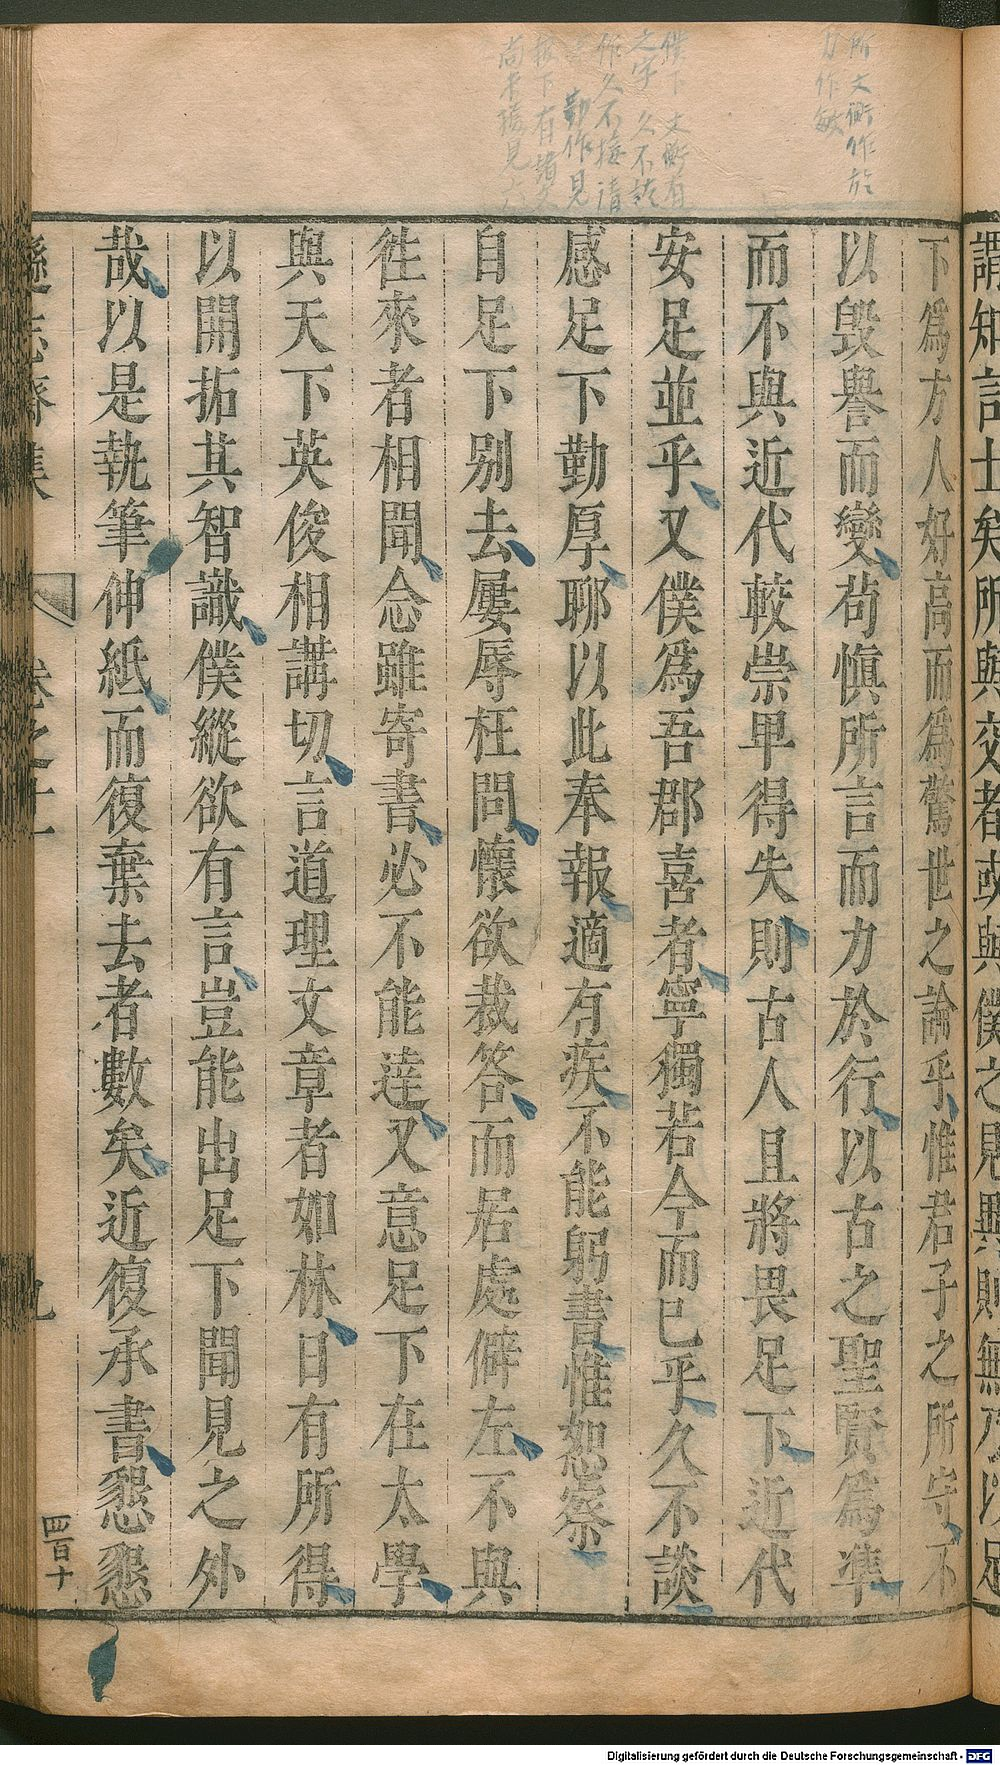 所文衡作於
力作敏
僕下文衡有
之字 久不談
作久不接清
勤作見
報下有書
謂知言士矣所與交者或與僕之見異則無乃以足
下為方人好高而為驚世之論乎惟君子之所守不
以毀譽而變苟慎所言而力於行以古之聖賢為準
而不與近代較崇卑得失則古人且將畏足下近代
安足並乎又僕為吾郡喜者寧獨若今而巳乎久不談
感足下勤厚聊以此奉報適有疾不能躬書惟恕察
自足下別去屢辱枉問懷欲裁答而居處僻左不與
徃來者相聞念雖寄書必不能達又意足下在太學
與天下英俊相講切言道理文章者如林日有所得
以開拓其智識僕縱欲有言豈能出足下聞見之外
哉以是執筆伸紙而復棄去者數矣近復承書懇懇
遜志齋集 卷之十一 九
四百十
Digitalisierung gefördert durch die Deutsche Forschungsgemeinschaft - DFG